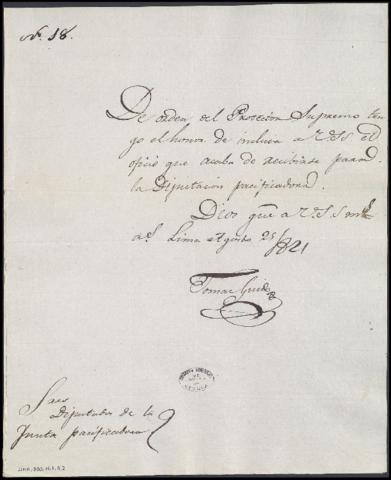 No. 18.
De orden del Protector Supremo ten
go el honor de incluir a V.S.S. el
oficio que acaba de recibirse para
la Diputacion pacificadora.
Dios gue. a V.S.S. ms.
as. Lima Agosto 25/821
Tomas Guido
Sres
Diputados de la
Junta pacificadora